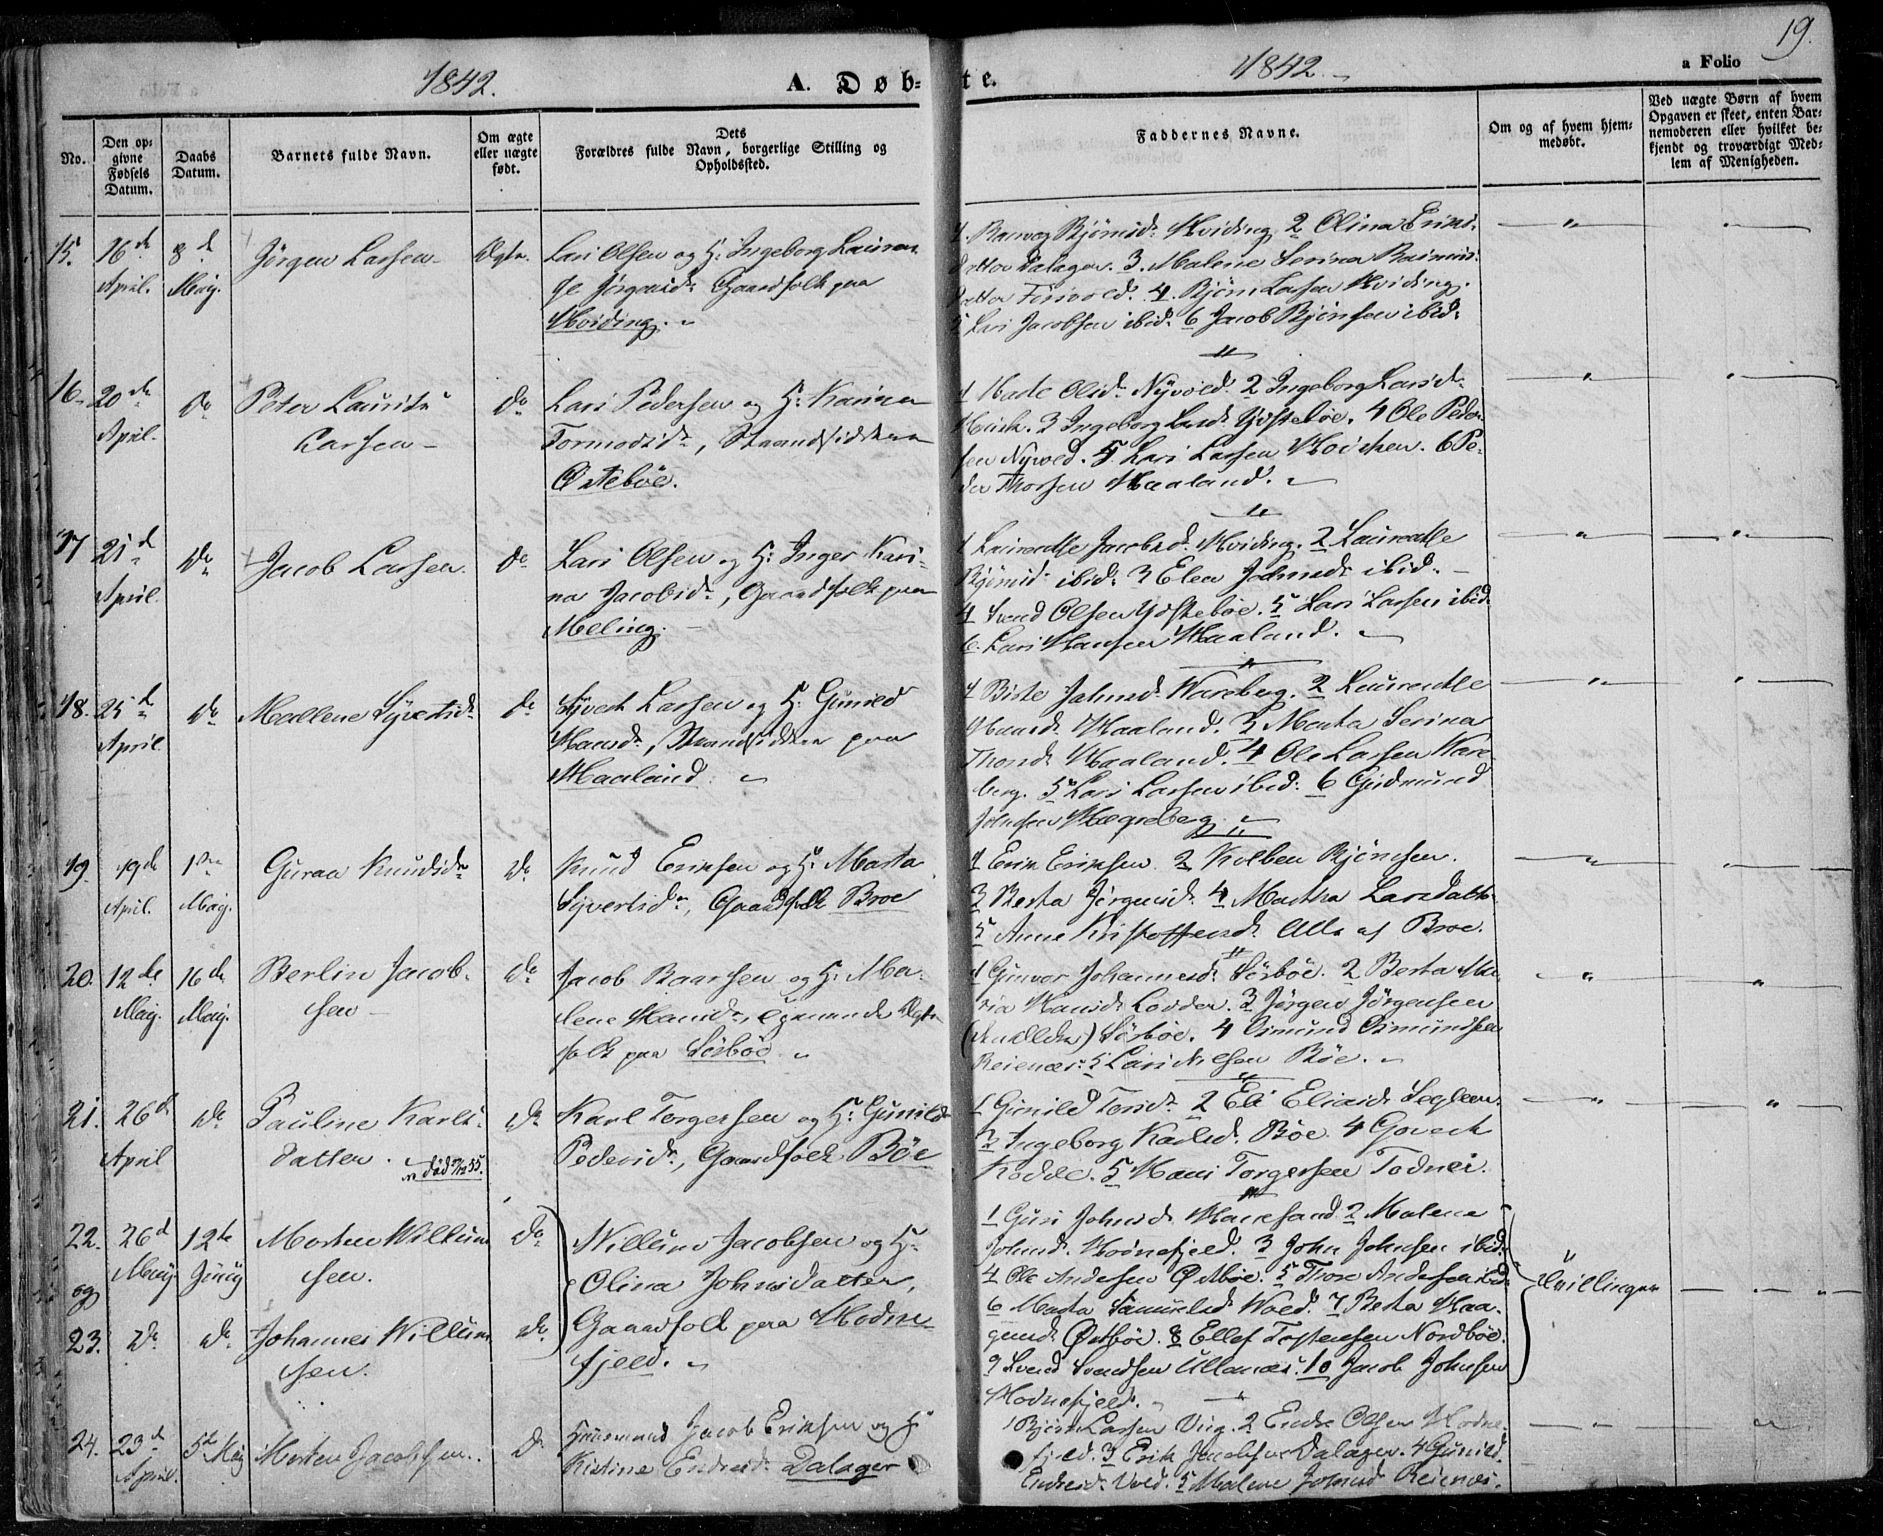 1842.
A. Døb-
te.
1842.
a Folio
19.
No.
Den op-
givne
Fødsels
Datum.
Daabs
Datum.
Barnets fulde Navn.
Om ægte
eller uægte
født.
Dets
Forældres fulde Navn, borgerlige Stilling og
Opholdssted.
Faddernes Navne.
Om og af hvem hjem-
medøbt.
Ved uægte Børn af hvem
Opgaven er skeet, enten Bar-
nemoderen eller hvilket be-
kjendt og troværdigt Med-
lem af Menigheden.
15.
16de
April.
8d
Maij.
Jörgen Larsen
Ægte.
Lars Olsen og H: Ingeborg Lauren-
Jörgensd: Gaardfolk paa
Hviding.
1. Bjørnsd: Hviding 2 Olina
datter Dalager. 3. Malene Serina Rasmus-
datter 4. Björn Larsen Hviding.
5 Lars Jacobsen ibid: 6 Jacob Bjönsen ibid:
16.
20de
April.
Do
Peter Laurits
Larsen
Do
Lars Pedersen og H: Karina
Tormodsdr, Strandsiddere
Østebøe.
1 Olsd: Nyvold. 2 Ingeborg Larsd:
3 Ingeborg Larsd: Ydstebøe. 4 Ole Peder-
sen Nyvold. 5. Lars Larsen 6 Pe-
der Thorsen Haaland.
17
21d
April.
Do
Jacob Larsen.
Do
Lars Olsen og H: Inger Kari-
na Jacobsdr, Gaardfolk paa
Meling.
1 Laurentse Jacobsd: Hviding. 2 Laurentse
Bjørnsd: ibid: 3 Elen Johnsd: ibid.
4 Svend Olsen Ydstebøe. 5 Lars Larsen ibid:
6. Lars Hansen Haaland.
18.
25d
April
Do
Mallene Syvertsdr
Do
Syvert Larsen og H: Gunild
Hansdr, Strandsiddere paa
Haaland.
1 Johnsd: Wareberg. 2 Laurentse
Hansd: Haaland. 3 Marta Serina
Thorsd: Haaland. 4 Ole Larsen Ware-
berg. 5 Lars Larsen ibid: 6 Gudmund
Johnsen
19.
19de
April.
1ste
Maij.
Guraa Knudsdr
Do
Knud Eriksen og H: Marta
Syvertsdr, Gaardfolk Broe
1 Erik Eriksen. 2 Kolben Bjönsen.
3 Berta Jörgensd: 4 Martha Larsdatter
5 Anne Kristoffersd: Alle af Broe.
20.
12de
Maij.
16de
Maij.
Berlin Jacob-
sen
Do
Jacob Baarsen og H: Ma-
lene Hansdr,
folk paa Sörbøe.
1 Gunvor Johannesd: Sörbøe. 2 Berta Ma-
ria Hansd: Lodden. 3 Jörgen Jörgensen
Sörbøe. 4 Osmund Osmundsen
Reienæs: 5 Lars Nilsen Bøe.
21.
26d
April
Do
Pauline Karls-
datter.
Do
Karl Torgersen og H: Gunild
Pedersdr, Gaardfolk Bøe
1 Gunild Torsdr. 2 Eli Eliasd: Seglem.
3 Ingeborg Karlsd: Bøe. 4 Govert
Kodde. 5 Hans Torgersen Todnes.
22.
og
26d
Maij
12te
Junij
Morten Willum-
sen.
Do
Willum Jacobsen og H:
Olina Johnsdatter,
Gaardfolk paa Hodne-
fjeld.
1 Guri Johnsd: 2 Malene
Johnsd: Hodnefjeld. 3 John Johnsen ibid:
4 Ole Andersen Østbøe. 5 Thore Andersen ibid:
6 Marta Samuelsd: Wold. 7 Berta Haa-
Østbøe. 8 Ellef Tostensen Nordbøe.
9 Svend Svendsen Ullanæs: 10 Jacob Johnsen
Hodnefjeld.
Tvillinger
23.
Do
Do
Johannes Willum-
sen.
Do
24.
23d
April.
5te Maij
Morten Jacobsen.
Do
Huusmand Jacob Eriksen og H:
Kistine Endresd: Dalager
1 Björn Larsen Viig. 2 Endre Olsen Hodne-
fjeld. 3 Erik Jacobsen Dalager. 4 Gunild
Endresd: Vold. 5 Malene Johnsd: Reienæs.